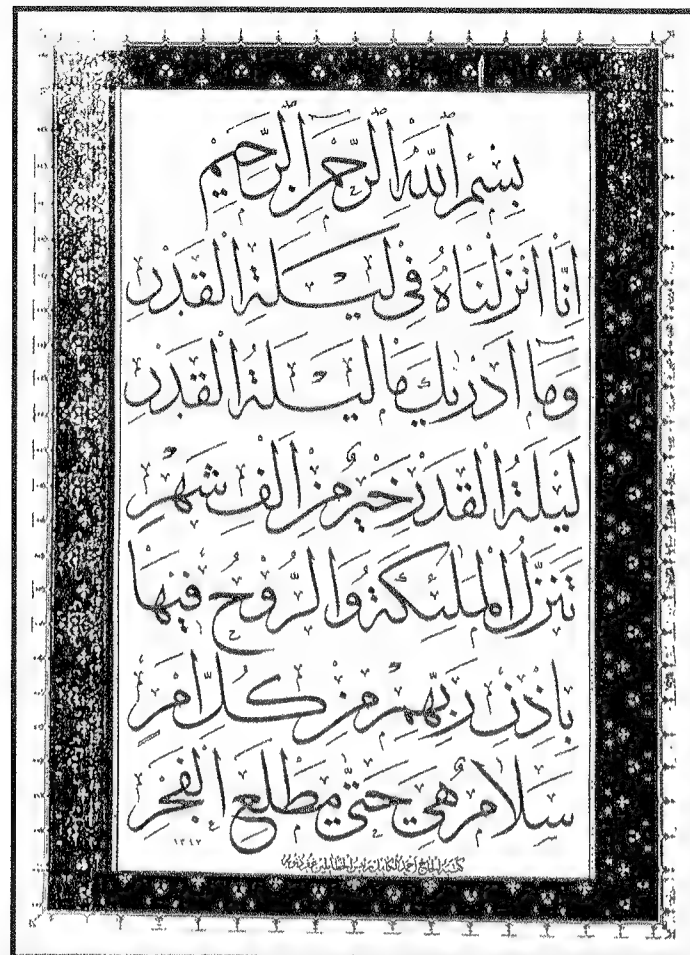 بِسْمِ اللّٰهِ الرَّحْمٰنِ الرَّحِيمِ
اِنَّا اَنْزَلْنَاهُ فِي لَيْلَةِ الْقَدْرِ
وَمَا اَدْرٰيكَ مَا لَيْلَةُ الْقَدْرِ
لَيْلَةُ الْقَدْرِ خَيْرٌ مِنْ اَلْفِ شَهْرٍ
تَنَزَّلُ الْمَلٰئِكَةُ وَالرُّوحُ فِيهَا
بِاِذْنِ رَبِّهِمْ مِنْ كُلِّ اَمْرٍ
سَلَامٌ هِيَ حَتّٰى مَطْلَعِ الْفَجْرِ
١٣١٢
كتبه الحاج احمد الكامل